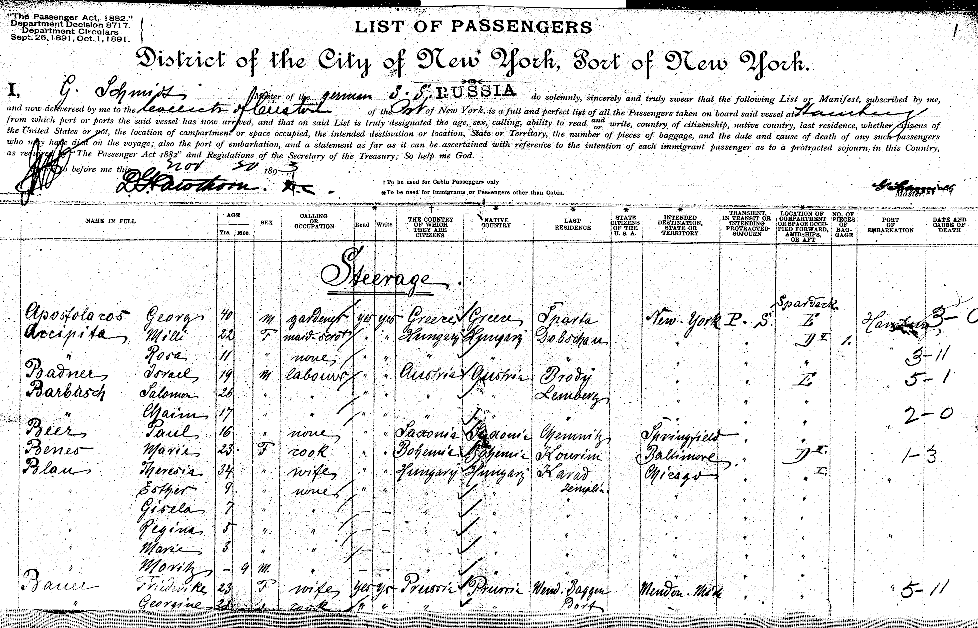 "The Passenger Act, 1882."
Department Decision 8717.
Department Circulars
Sept. 25, 1891, Oct. 1, 1891.
1
LIST OF PASSENGERS
District of the City of New York, Port of New York.
I, G. Schmidt Master of the german S. S. RUSSIA do solemnly, sincerely and truly swear that the following List or Manifest, subscribed by me,
and now delivered by me to the of the Port of New York, is a full and perfect list of all the Passengers taken on board said vessel at
from which port or ports the said vessel has now arrived, and that on said List is truly designated the age, sex, calling, ability to read and or write, country of citizenship, native country, last residence, whether citizens of
the United States or not, the location of compartment or space occupied, the intended destination or location, State or Territory, the number of pieces of baggage, and the date and cause of death of any such passengers
who may have died on the voyage; also the port of embarkation, and a statement as far as it can be ascertained with reference to the intention of each immigrant passenger as to a protracted sojourn in this Country,
as "The Passenger Act 1882" and Regulations of the Secretary of the Treasury; So help me God.
to before me this Nov 20 1893
† To be used for Cabin Passengers only
* To be used for Immigrants or Passengers other than Cabin.
Master
NAME IN FULL AGE Yrs. Mos. SEX CALLING OR OCCUPATION Read Write THE COUNTRY OF WHICH THEY ARE CITIZENS NATIVE COUNTRY LAST RESIDENCE STATE CITIZENS OF THE U. S. A. INTENDED DESTINATION, STATE OR TERRITORY TRANSIENT, IN TRANSIT OR INTENDING PROTRACTED SOJOURN LOCATION OF COMPARTMENT OR SPACE OCCUPIED FORWARD, AMIDSHIPS, OR AFT NO. OF PIECES OF BAGGAGE PORT OF EMBARKATION DATE AND CAUSE OF DEATH
Steerage.
Apostolacos Georg 40 m gardener yes yes Greece Greece Sparta New-York P. S. E
Arcipita Midi 22 F Hungary Hungary Dobschau
" Rosa 11 " none " " 3-11
Badner Israel 19 m labourer Austria Austria Brody E 5-1
Barbasch Salomon 26 " Lemberg
" Chaim 17 " 2-0
Beer Paul 16 " none Saxonia Saxonia Chemnitz Springfield
Benes Marie 23 F cook Bohemia Bohemia Kowrim Baltimore 1-3
Blau Theresia 34 " wife Hungary Hungary Karad Chicago
Esther 9 " none Zemplin
Gisela 7 "
Regina 5 "
Marie 3 "
Moritz - 9 m.
Bauer Friederike 23 F wife yes yes Prussia Prussia Mendon 5-11
" Georgine cook